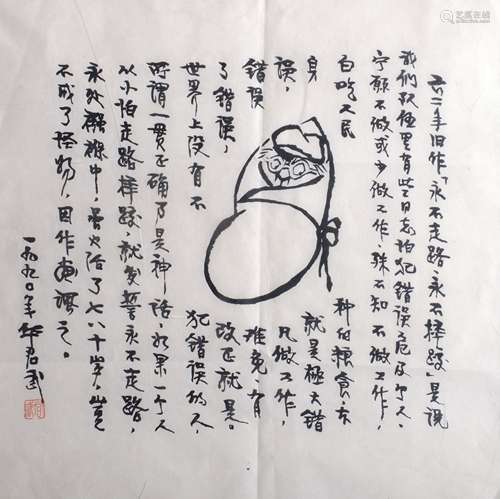 六二年旧作「永不走路，永不摔跤」是说
我们队伍里有些同志怕犯错误危及个人、
宁愿不做或少做工作，殊不知不做工作，
白吃人民种的粮食，本
身就是極大错
误，凡做工作，
错误难免有
了错误，改正就是。
世界上没有不犯错误的人，
所谓一贯正确乃是神话，如果一个人
从小怕走路摔跤，就发誓永不走路，
永处襁褓中，当他活了七八十岁，岂
不成了怪物，因作画讽之。
一九九〇年华君武